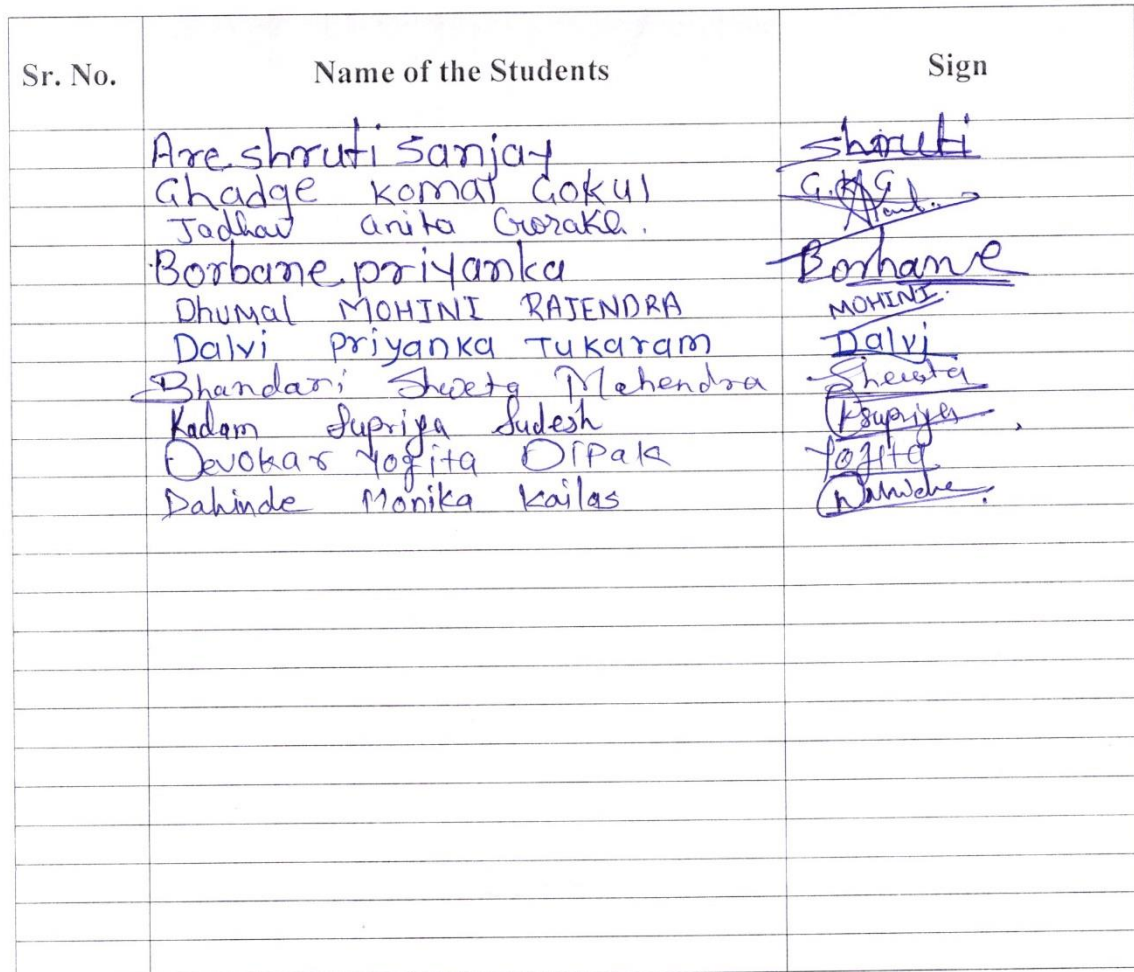 Sr. No. Name of the Students Sign
Are shruti Sanjay shruti
Ghadge Komal Gokul G.K.G
Jadhav anita
Borbane priyanka Borbane
Dhumal MOHINI RAJENDRA MOHINI.
Dalvi Priyanka Tukaram Dalvi
Bhandari Shweta Mahendra Shweta
Kadam Supriya Sudesh Ksupriya
Devokar Yogita Dipak Yogita
Dahinde Monika Kailas